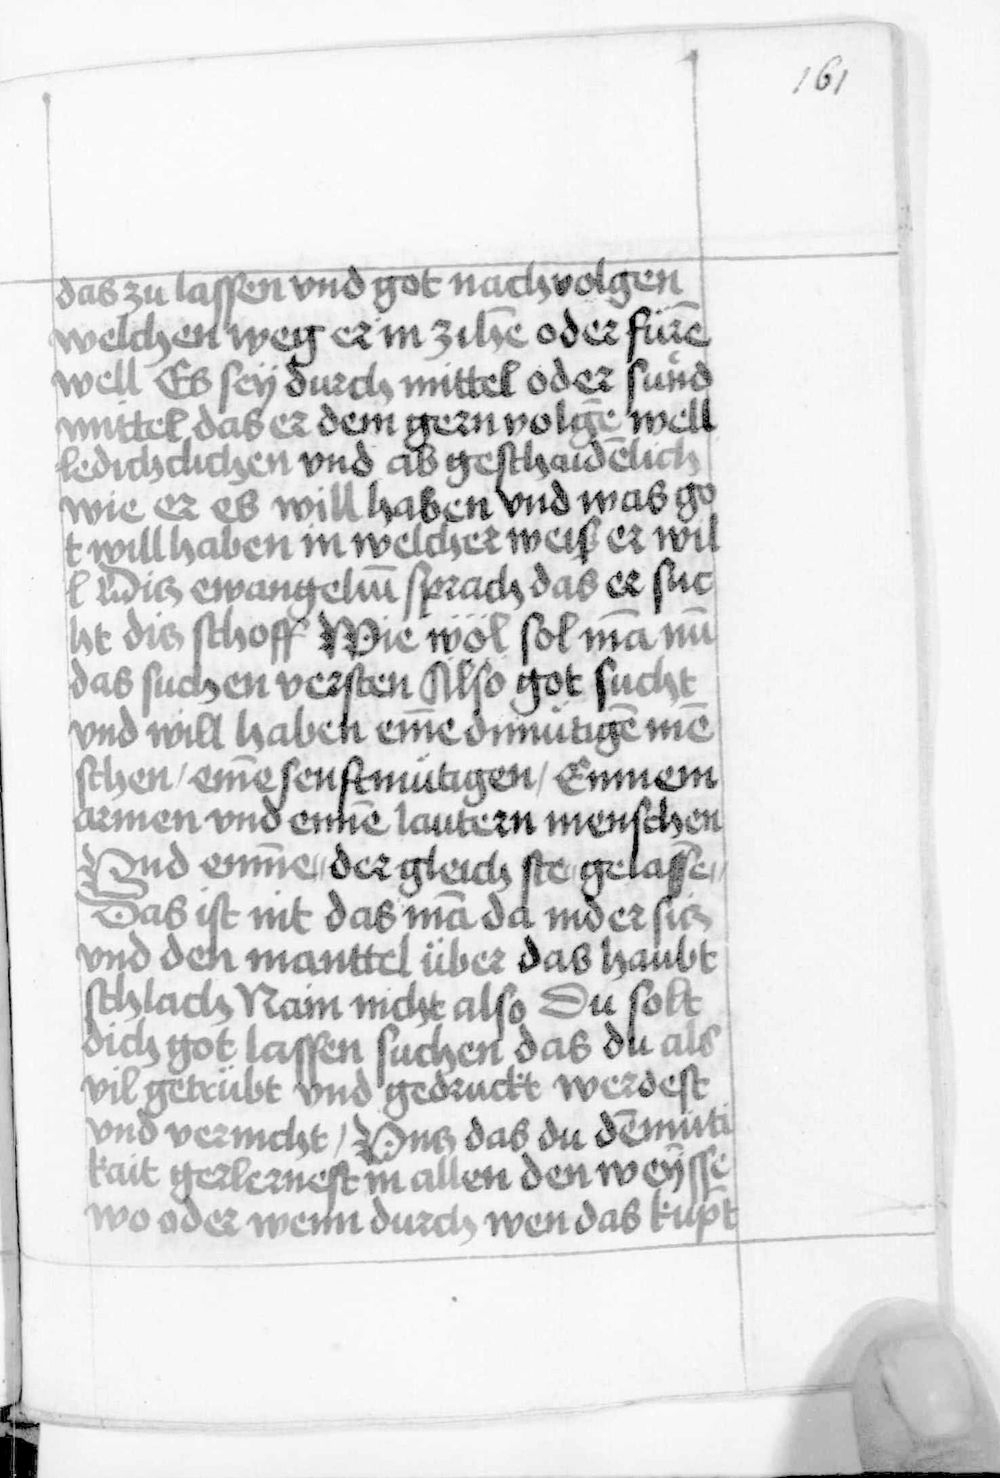 161
das zu lassen vnd got nachvolgen
welchen weg er in zihē oder fürē
well Es seÿ durch mittel oder sund
mittel das er dem gern volgē well
ledichclichen vnd ab geschaidēlich
wie er es will haben vnd was go
t will haben in welcher weiß er wil
l Dis ewangeliū sprach das er suc
ht dis schoff Wie wöl sol mā nū
das suchen versten Also got sucht
vnd will haben eīnē dimütigē mē
schen / eīnē senftmütigen / Einnem
armen vnd einnē lautern menschen
Vnd einnē der gleich ste gelassē
Das ist nit das mā da nider sicz
vnd den manttel über das haubt
schlach Nain nicht also Du solt
dich got lassen suchen das du als
vil getrübt vnd gedruckt werdest
vnd vernicht / Vncz das du dēmüti
kait gerlernest in allen den weÿssē
wo oder wenn durch wen das kupt